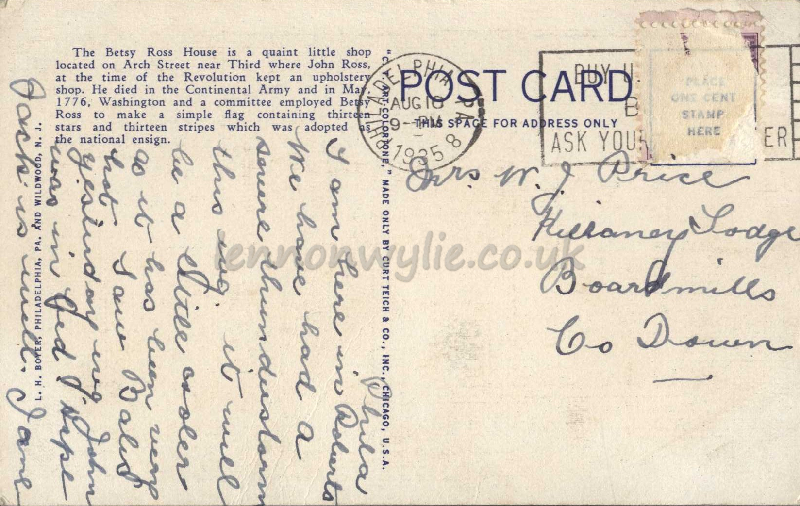 The Betsy Ross House is a quaint little shop
located on Arch Street near Third where John Ross,
at the time of the Revolution kept an upholstery
shop. He died in the Continental Army and in May,
1776, Washington and a committee employed Betsy
Ross to make a simple flag containing thirteen
stars and thirteen stripes which was adopted as
the national ensign.
L. H. BOYER, PHILADELPHIA, PA. AND WILDWOOD, N. J.
"C. T. ART-COLORTONE," MADE ONLY BY CURT TEICH & CO., INC., CHICAGO, U.S.A.
PHILADELPHIA PA
AUG 10
1935
8
BUY U
ASK YOUR
ER
POST CARD
THIS SPACE FOR ADDRESS ONLY
PLACE
ONE CENT
STAMP
HERE
Phila
I am here in Roberts
We have had a
severe thunderstorm
this evg. it will
be a little cooler
as it has been very
hot Saw
yesterday evg John
was in
Jack is well. Jane
Mrs. W. J. Price
Killaney Lodge
Boardmills
Co Down
lennonwylie.co.uk